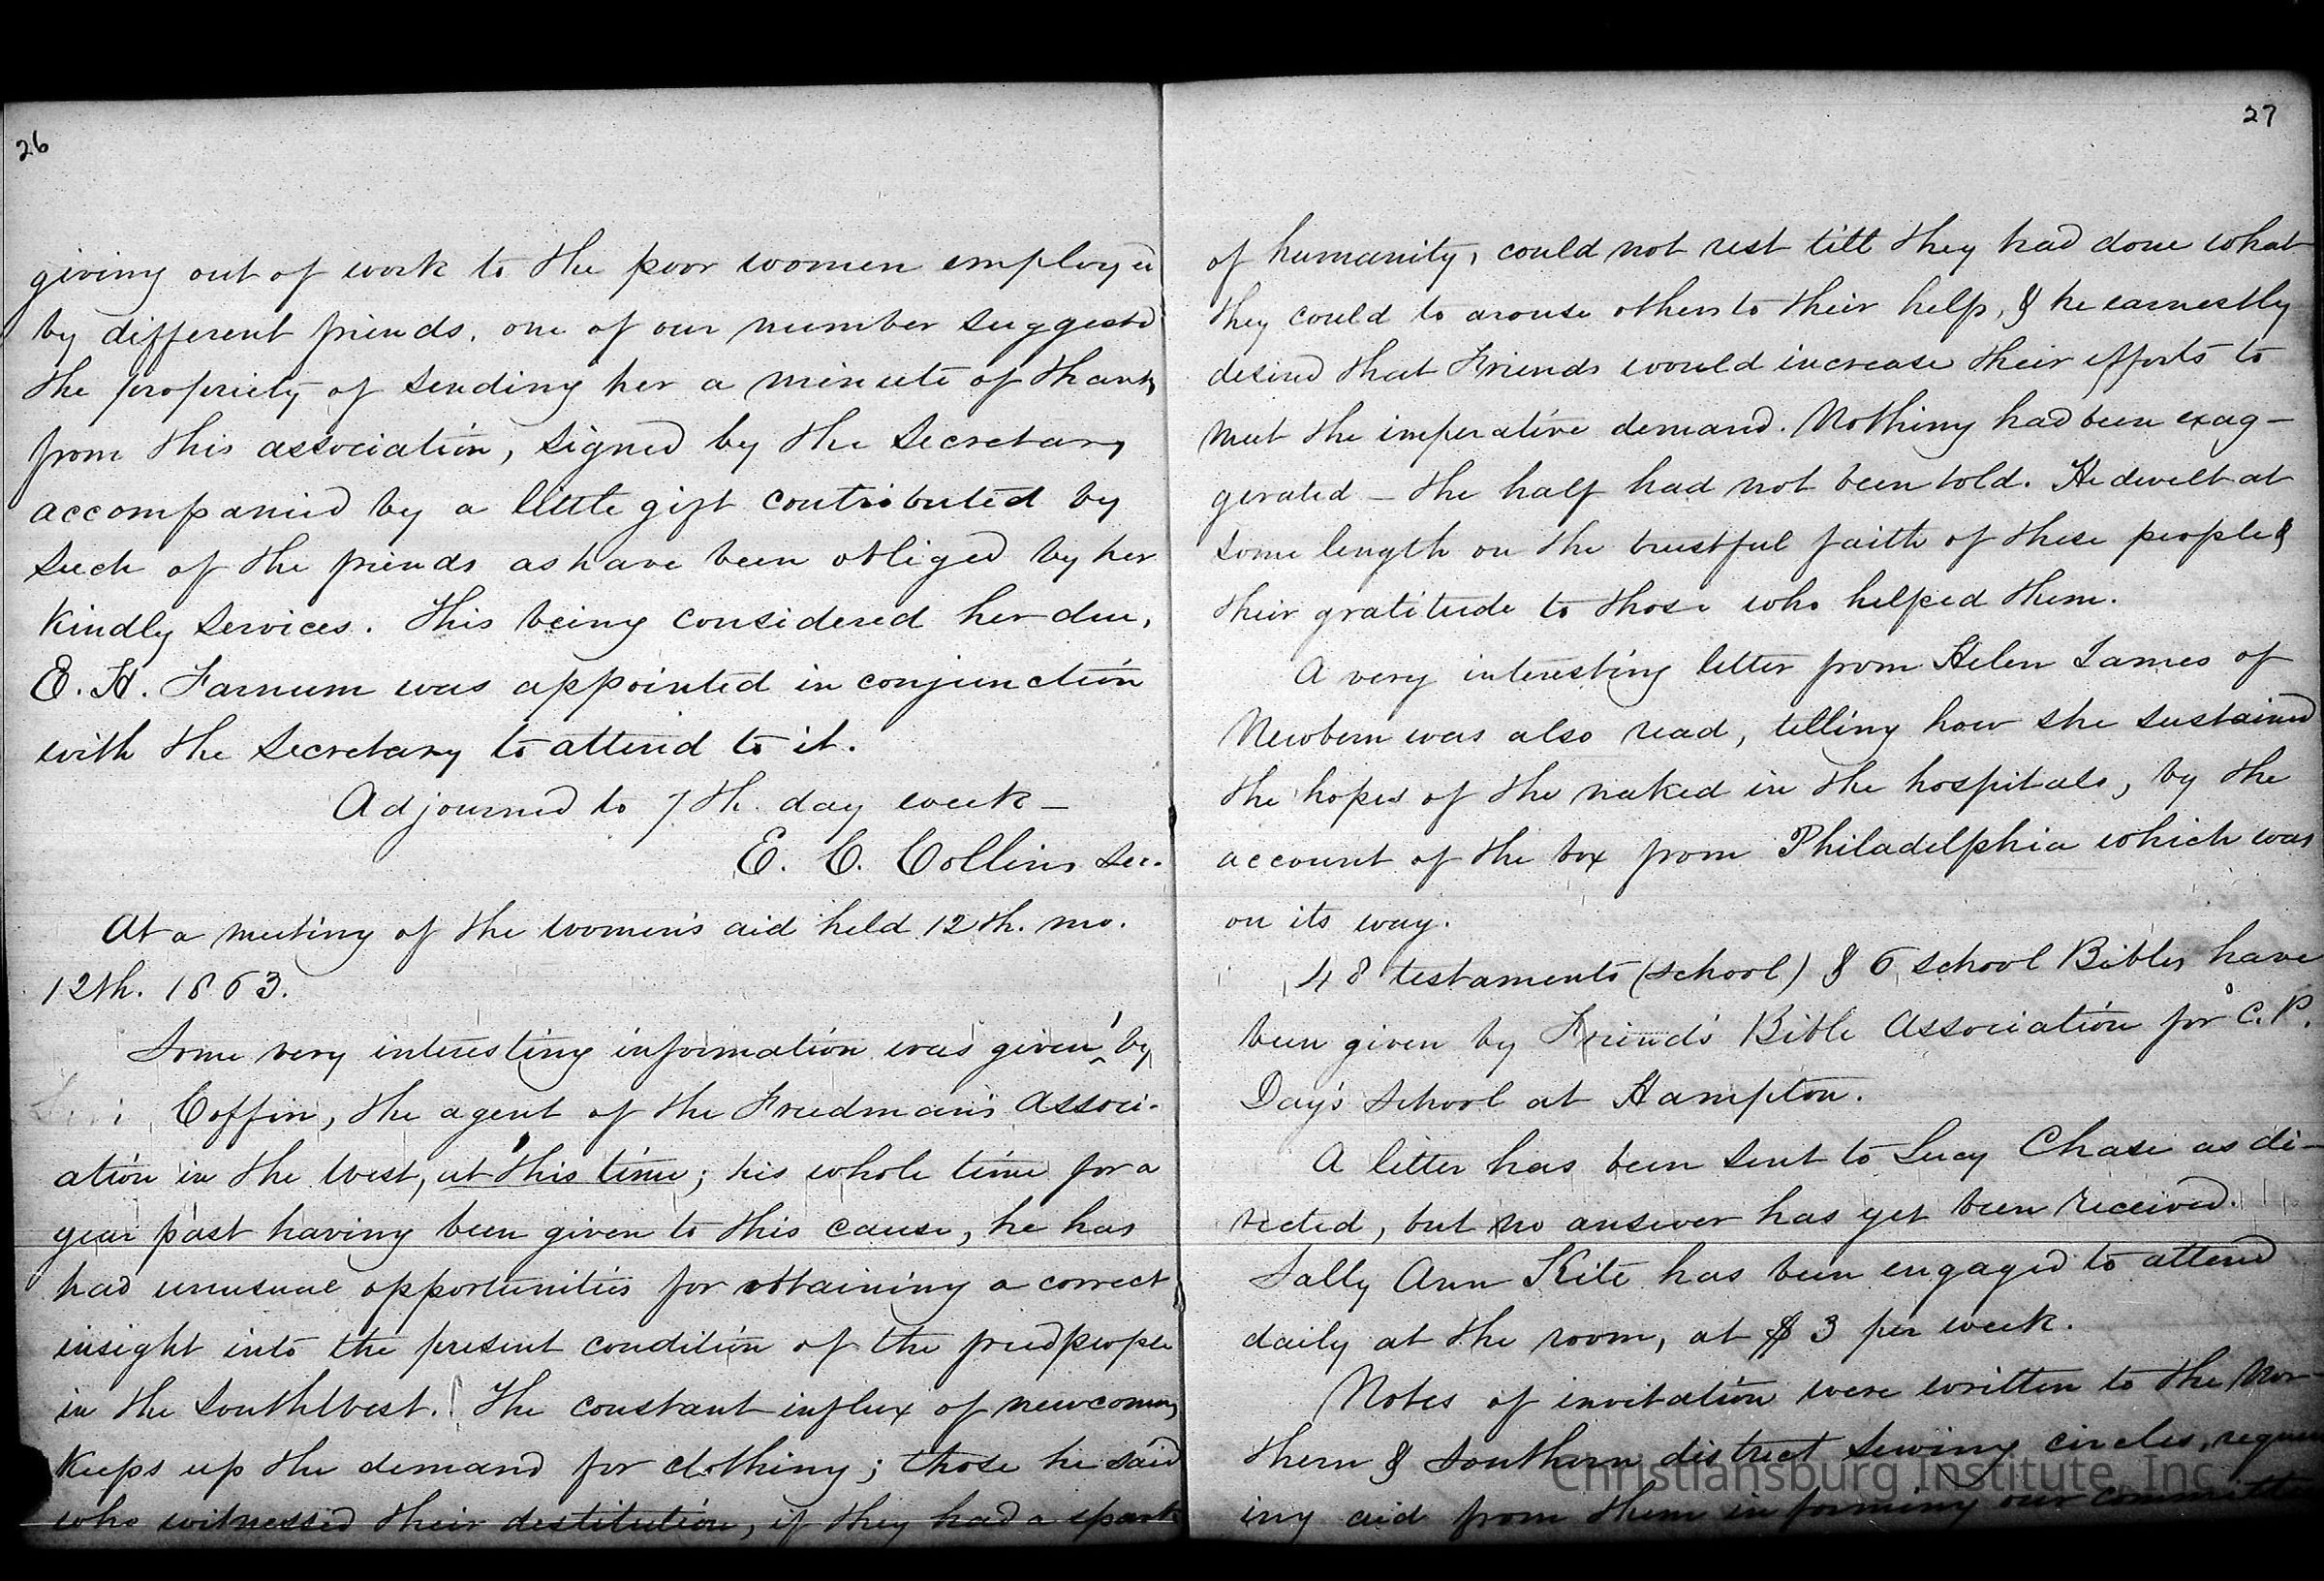 26
giving out of work to the poor women employed
by different friends, one of our number suggested
the propriety of sending her a minute of thanks
from this association, signed by the Secretary
accompanied by a little gift contributed by
such of the friends as have been obliged by her
kindly services. This being considered her due,
E. H. Farnum was appointed in conjunction
with the Secretary to attend to it.
Adjourned to 7th. day week —
E. C. Collins Sec.
At a meeting of the women's aid held 12th. mo.
12th. 1863.
Some very interesting information was given by
Levi Coffin, the agent of the Freedman's Associ-
ation in the West, at this time; his whole time for a
year past having been given to this cause, he has
had unusual opportunities for obtaining a correct
insight into the present condition of the freedpeople
in the SouthWest. The constant influx of newcomers
keeps up the demand for clothing; those he said
who witnessed their destitution, if they had a spark
27
of humanity, could not rest till they had done what
they could to arouse others to their help, & he earnestly
desired that Friends would increase their efforts to
meet the imperative demand. Nothing had been exag-
gerated — the half had not been told. He dwelt at
some length on the trustful faith of these people &
their gratitude to those who helped them.
A very interesting letter from Helen James of
Newbern was also read, telling how she sustained
the hopes of the naked in the hospitals, by the
account of the box from Philadelphia which was
on its way.
48 testaments (school) & 6 school Bibles have
been given by Friend's Bible Association for C. P.
Day's School at Hampton.
A letter has been sent to Lucy Chase as di-
rected, but no answer has yet been received.
Sally Ann Kite has been engaged to attend
daily at the room, at $3 per week.
Notes of invitation were written to the Nor
thern & Southern district sewing circles, reques
ing aid from them in forming our committ
Christiansburg Institute, Inc.